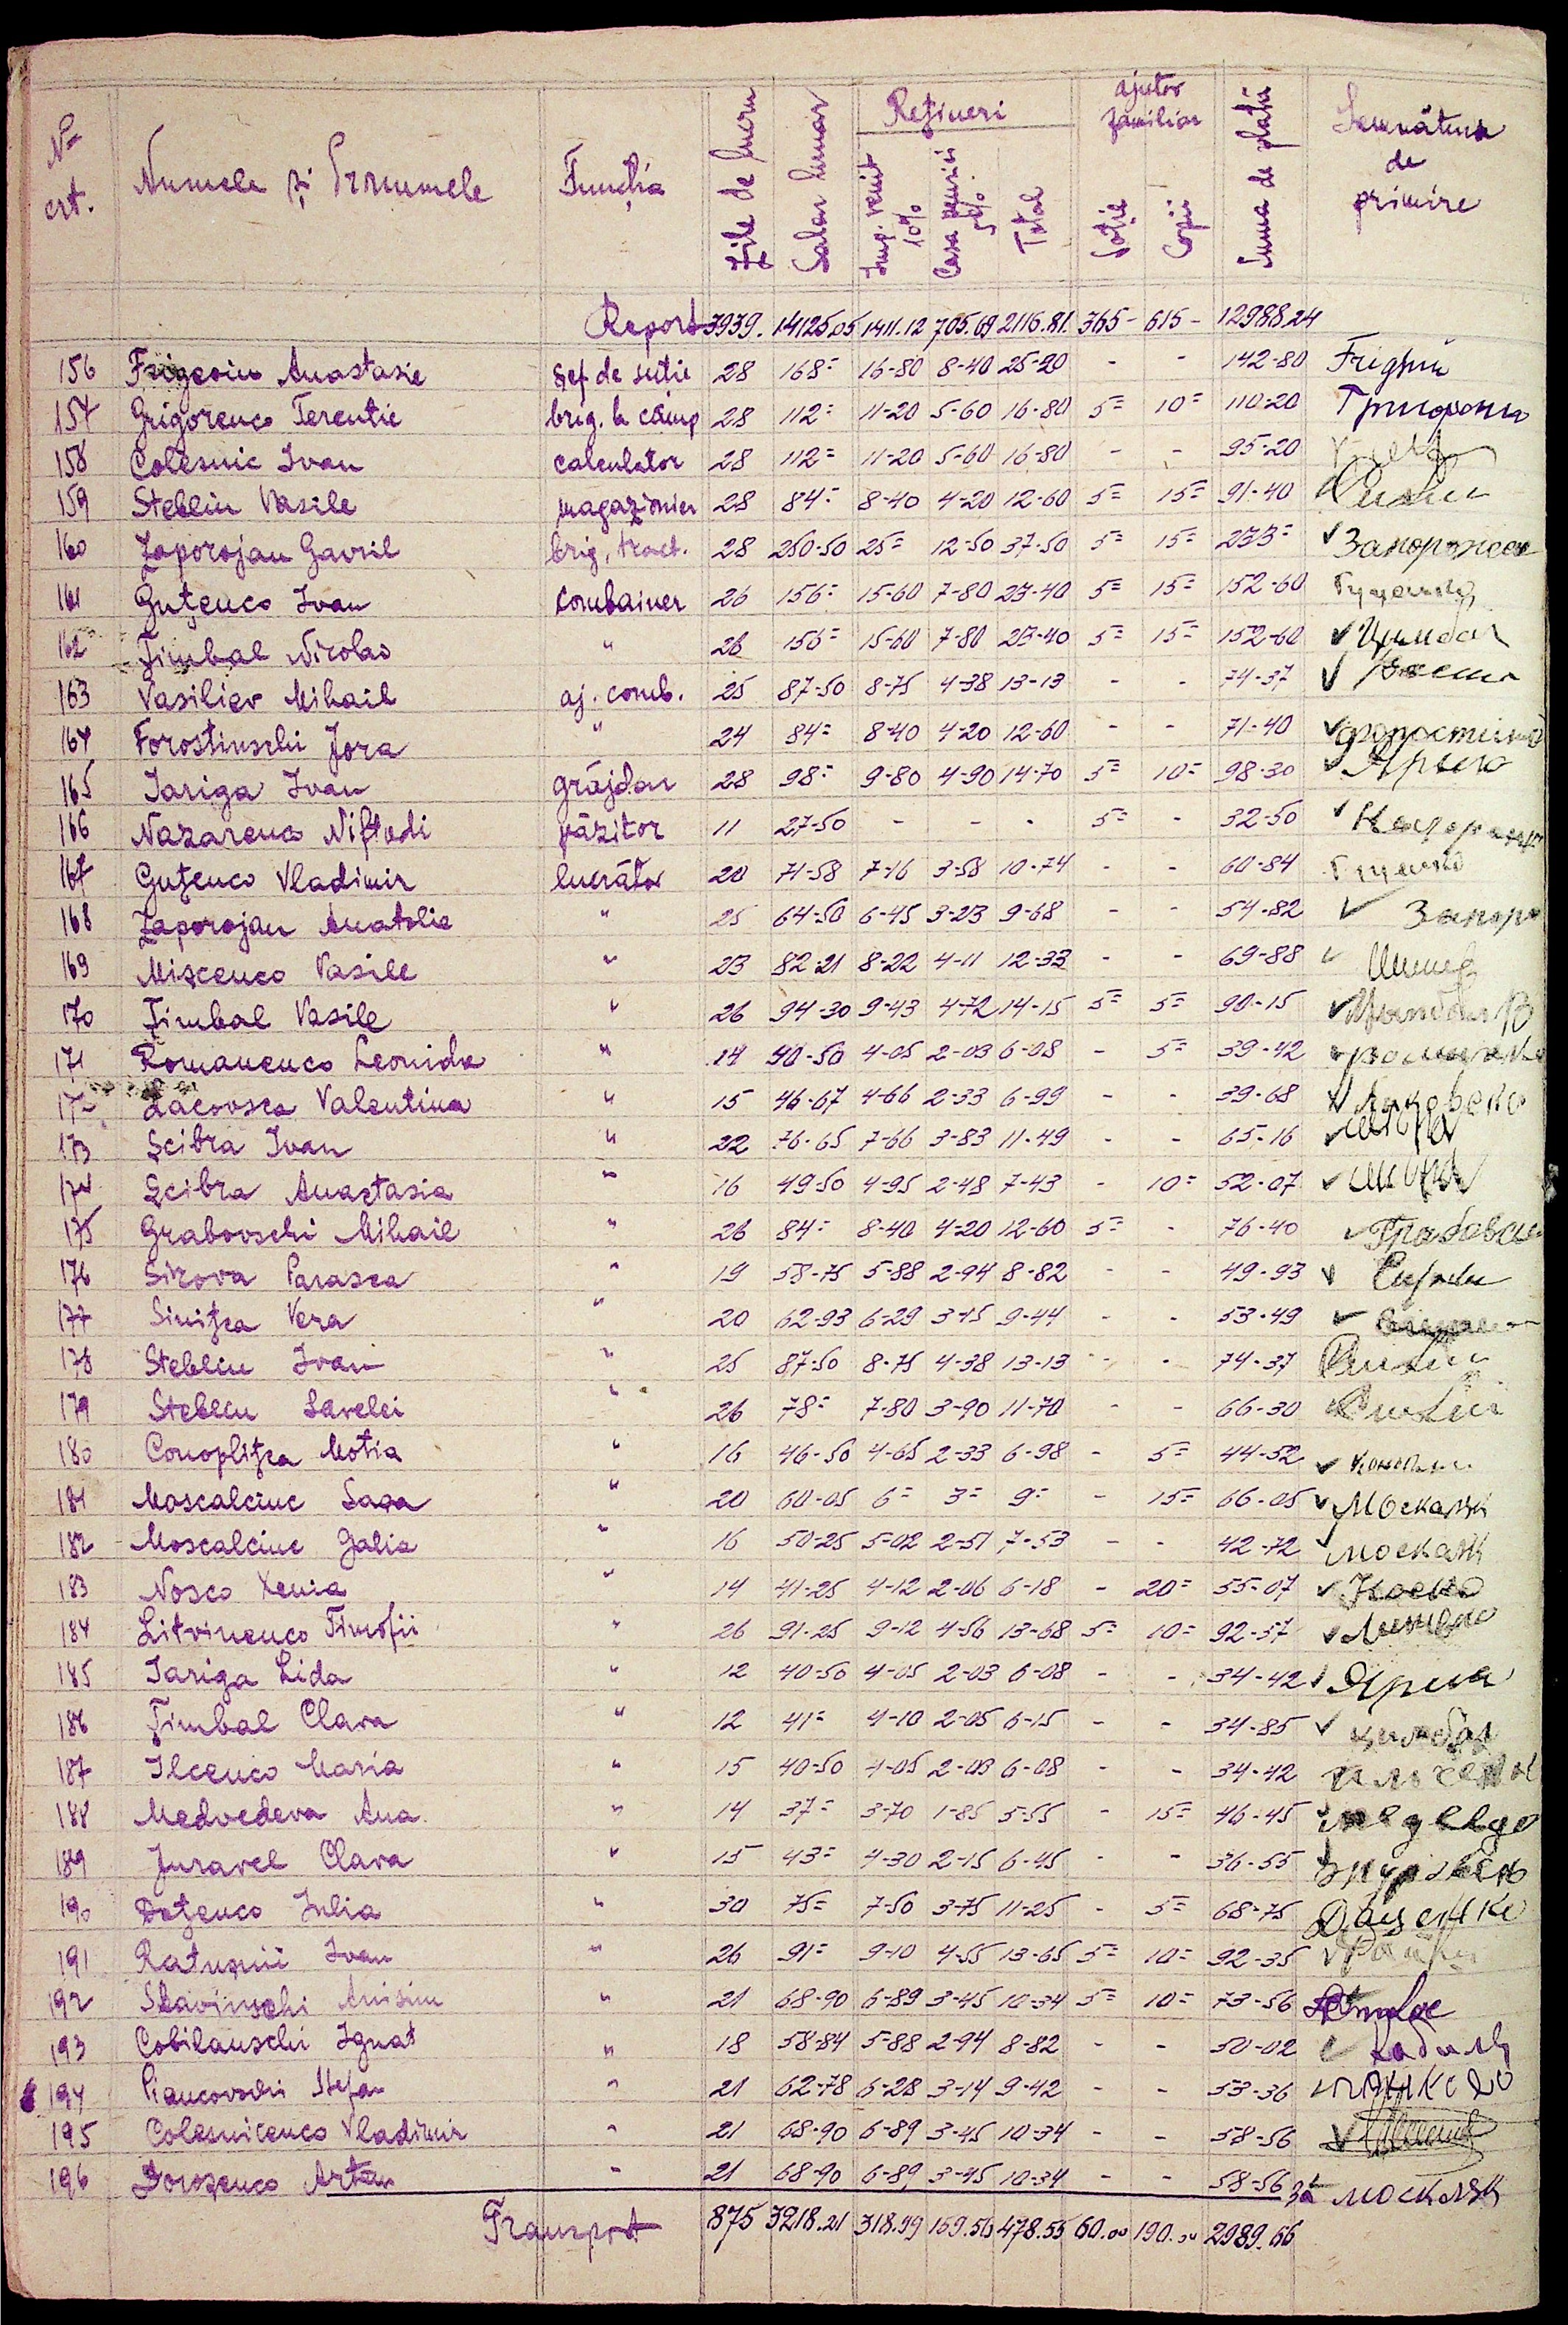 № crt. Numele și Pronumele Funcția Zile de lucru Salar lunar Rețineri Imp. venit 10% Casa pensii 5% Total Ajutor familiar Soție Copii Suma de plată Semnătura de primire
Report 3939. 14125.05 1411.12 705.69 2116.81. 365- 615- 12988.24
156 Frigeoiu Anastasie șef de secție 28 168= 16-80 8-40 25-20 - - 142-80
157 Grigorenco Terentie brig. la câmp 28 112= 11-20 5-60 16-80 5= 10= 110-20
158 Colesnic Ivan calculator 28 112= 11-20 5-60 16-80 - - 95-20
159 Stebliu Vasile magazioner 28 84= 8-40 4-20 12-60 5= 15= 91-40
160 Zaporojan Gavril brig. tract. 28 250-50 25= 12-50 37-50 5= 15= 233= Запорожан
161 Guțenco Ivan Combainer 26 156= 15-60 7-80 23-40 5= 15= 152-60 Гуценко
162 Țimbal Nicolae " 26 156= 15-60 7-80 23-40 5= 15= 152-60 Цимбал
163 Vasiliev Mihail aj. comb. 25 87-50 8-75 4-38 13-13 - - 74-37
164 Forostinschi Jora " 24 84= 8-40 4-20 12-60 - - 71-40
165 Iariga Ivan grăjdar 28 98= 9-80 4-90 14-70 5= 10= 98-30
166 Nazarenco Niftodi păzitor 11 27-50 - - - 5= - 32-50
167 Guțenco Vladimir lucrător 20 71-58 7-16 3-58 10-74 - - 60-84
168 Zaporojan Anatolie " 25 64-50 6-45 3-23 9-68 - - 54-82 Запоро
169 Mișcenco Vasile " 23 82-21 8-22 4-11 12-33 - - 69-88
170 Țimbal Vasile " 26 94-30 9-43 4-72 14-15 5= 5= 90-15 Цимбал В
171 Romanenco Leonida " 14 40-50 4-05 2-03 6-08 - 5= 39-42
Lacovsca Valentina " 15 46-67 4-66 2-33 6-99 - - 39-68
173 Șcibra Ivan " 22 76-65 7-66 3-83 11-49 - - 65-16
174 Șcibra Anastasia " 16 49-50 4-95 2-48 7-43 - 10= 52-07
175 Grabovschi Mihail " 26 84= 8-40 4-20 12-60 5= - 76-40
176 Sirova Parasca " 19 58-75 5-88 2-94 8-82 - - 49-93
177 Sinițca Vera " 20 62-93 6-29 3-15 9-44 - - 53-49
178 Stebliu Ivan " 25 87-50 8-75 4-38 13-13 - - 74-37
179 Stebliu Savelei " 26 78= 7-80 3-90 11-70 - - 66-30
180 Conoplițca Motia " 16 46-50 4-65 2-33 6-98 - 5= 44-52
181 Moscalciuc Sava " 20 60-05 6= 3= 9= - 15= 66-05 Москалчк
182 Moscalciuc Galia " 16 50-25 5-02 2-51 7-53 - - 42-72
183 Nosco Xenia " 14 41-25 4-12 2-06 6-18 - 20= 55-07 Носко
184 Litvinenco Timofii " 26 91-25 9-12 4-56 13-68 5= 10= 92-57
185 Iariga Lida " 12 40-50 4-05 2-03 6-08 - - 34-42 Ярига
186 Țimbal Clara " 12 41= 4-10 2-05 6-15 - - 34-85 цимбал
187 Ilcenco Maria " 15 40-50 4-05 2-03 6-08 - - 34-42
188 Medvedeva Ana " 14 37= 3-70 1-85 5-55 - 15= 46-45
189 Juravel Clara " 15 43= 4-30 2-15 6-45 - - 36-55
190 Dațenco Iulia " 30 75= 7-50 3-75 11-25 - 5= 68-75 Даценко
191 Ratușnii Ivan " 26 91= 9-10 4-55 13-65 5= 10= 92-35
192 Slavinschi Anisim " 21 68-90 6-89 3-45 10-34 5= 10= 73-56
193 Cobileanschi Ignat " 18 58-84 5-88 2-94 8-82 - - 50-02
194 Piancovschi Ștefan " 21 62-78 6-28 3-14 9-42 - - 53-36
195 Colesnicenco Vladimir " 21 68-90 6-89 3-45 10-34 - - 58-56
196 Doroșenco Artom " 21 68-90 6-89 3-45 10-34 - - 58-56 за
Transport 875 3218.21 318.99 159.56 478.55 60.00 190.00 2989.66